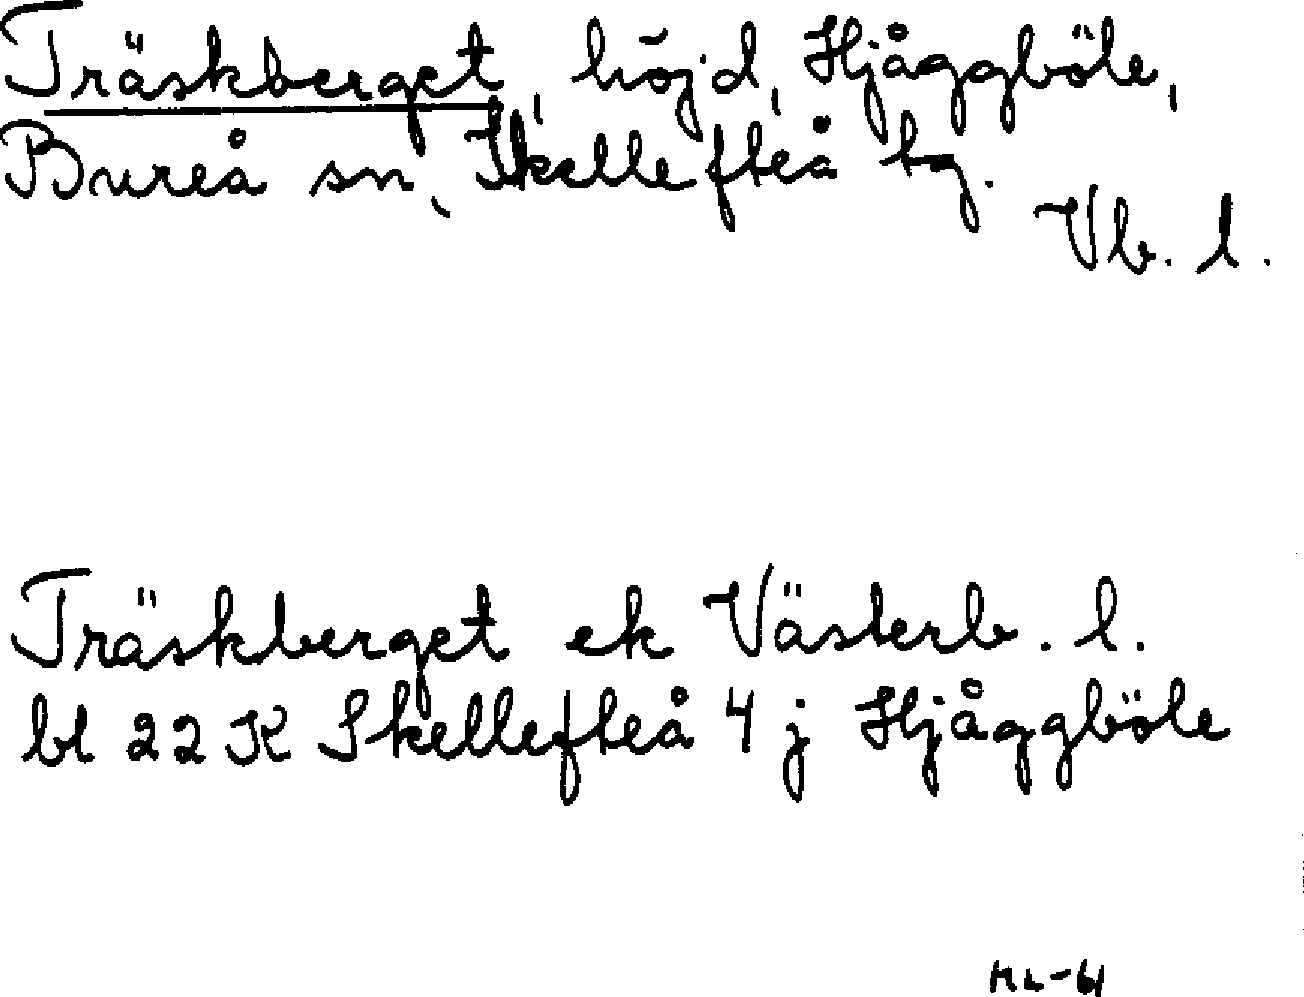 Träskberget, höjd, Hjåggböle,
Bureå sn, Skellefteå tg.
Vb. l.
Träskberget ek Västerb. l.
bl 22 K Skellefteå 4 j Hjåggböle